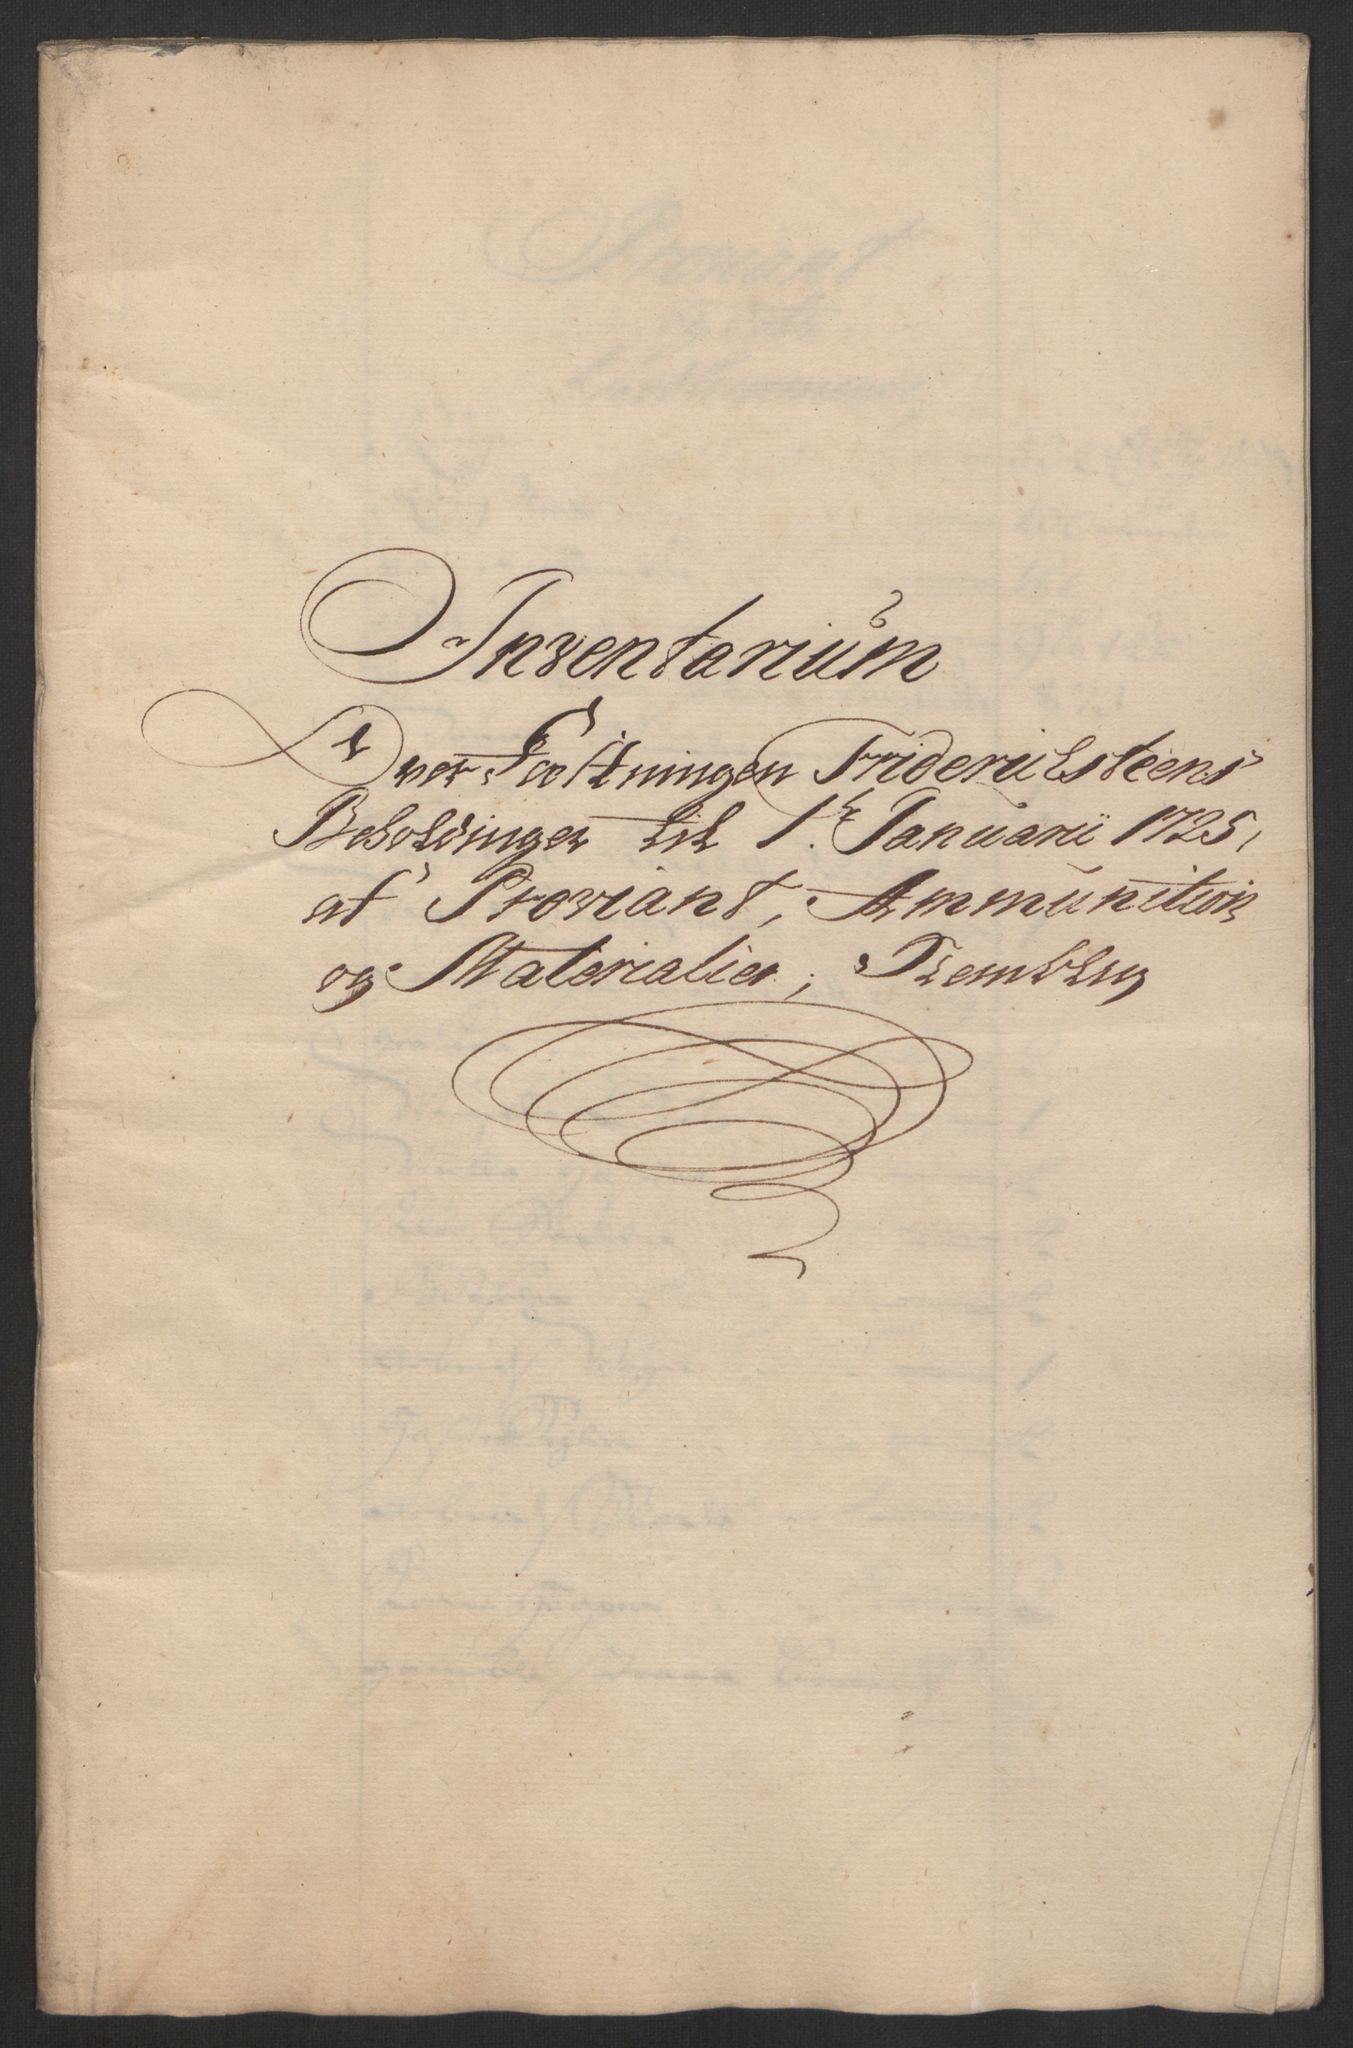 Inventarium
Over Fæstningen Friderichsteens
Beholdninger til 1te Januarii 1725,
af Proviant, Ammunition
og Materialier,